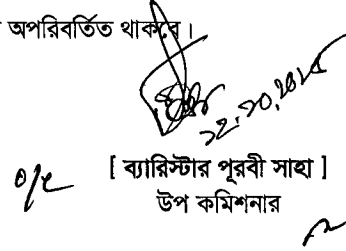 অপরিবর্তিত থাকবে।
২২.১০.২০২৫
o/c
[ ব্যারিস্টার পূরবী সাহা ]
উপ কমিশনার